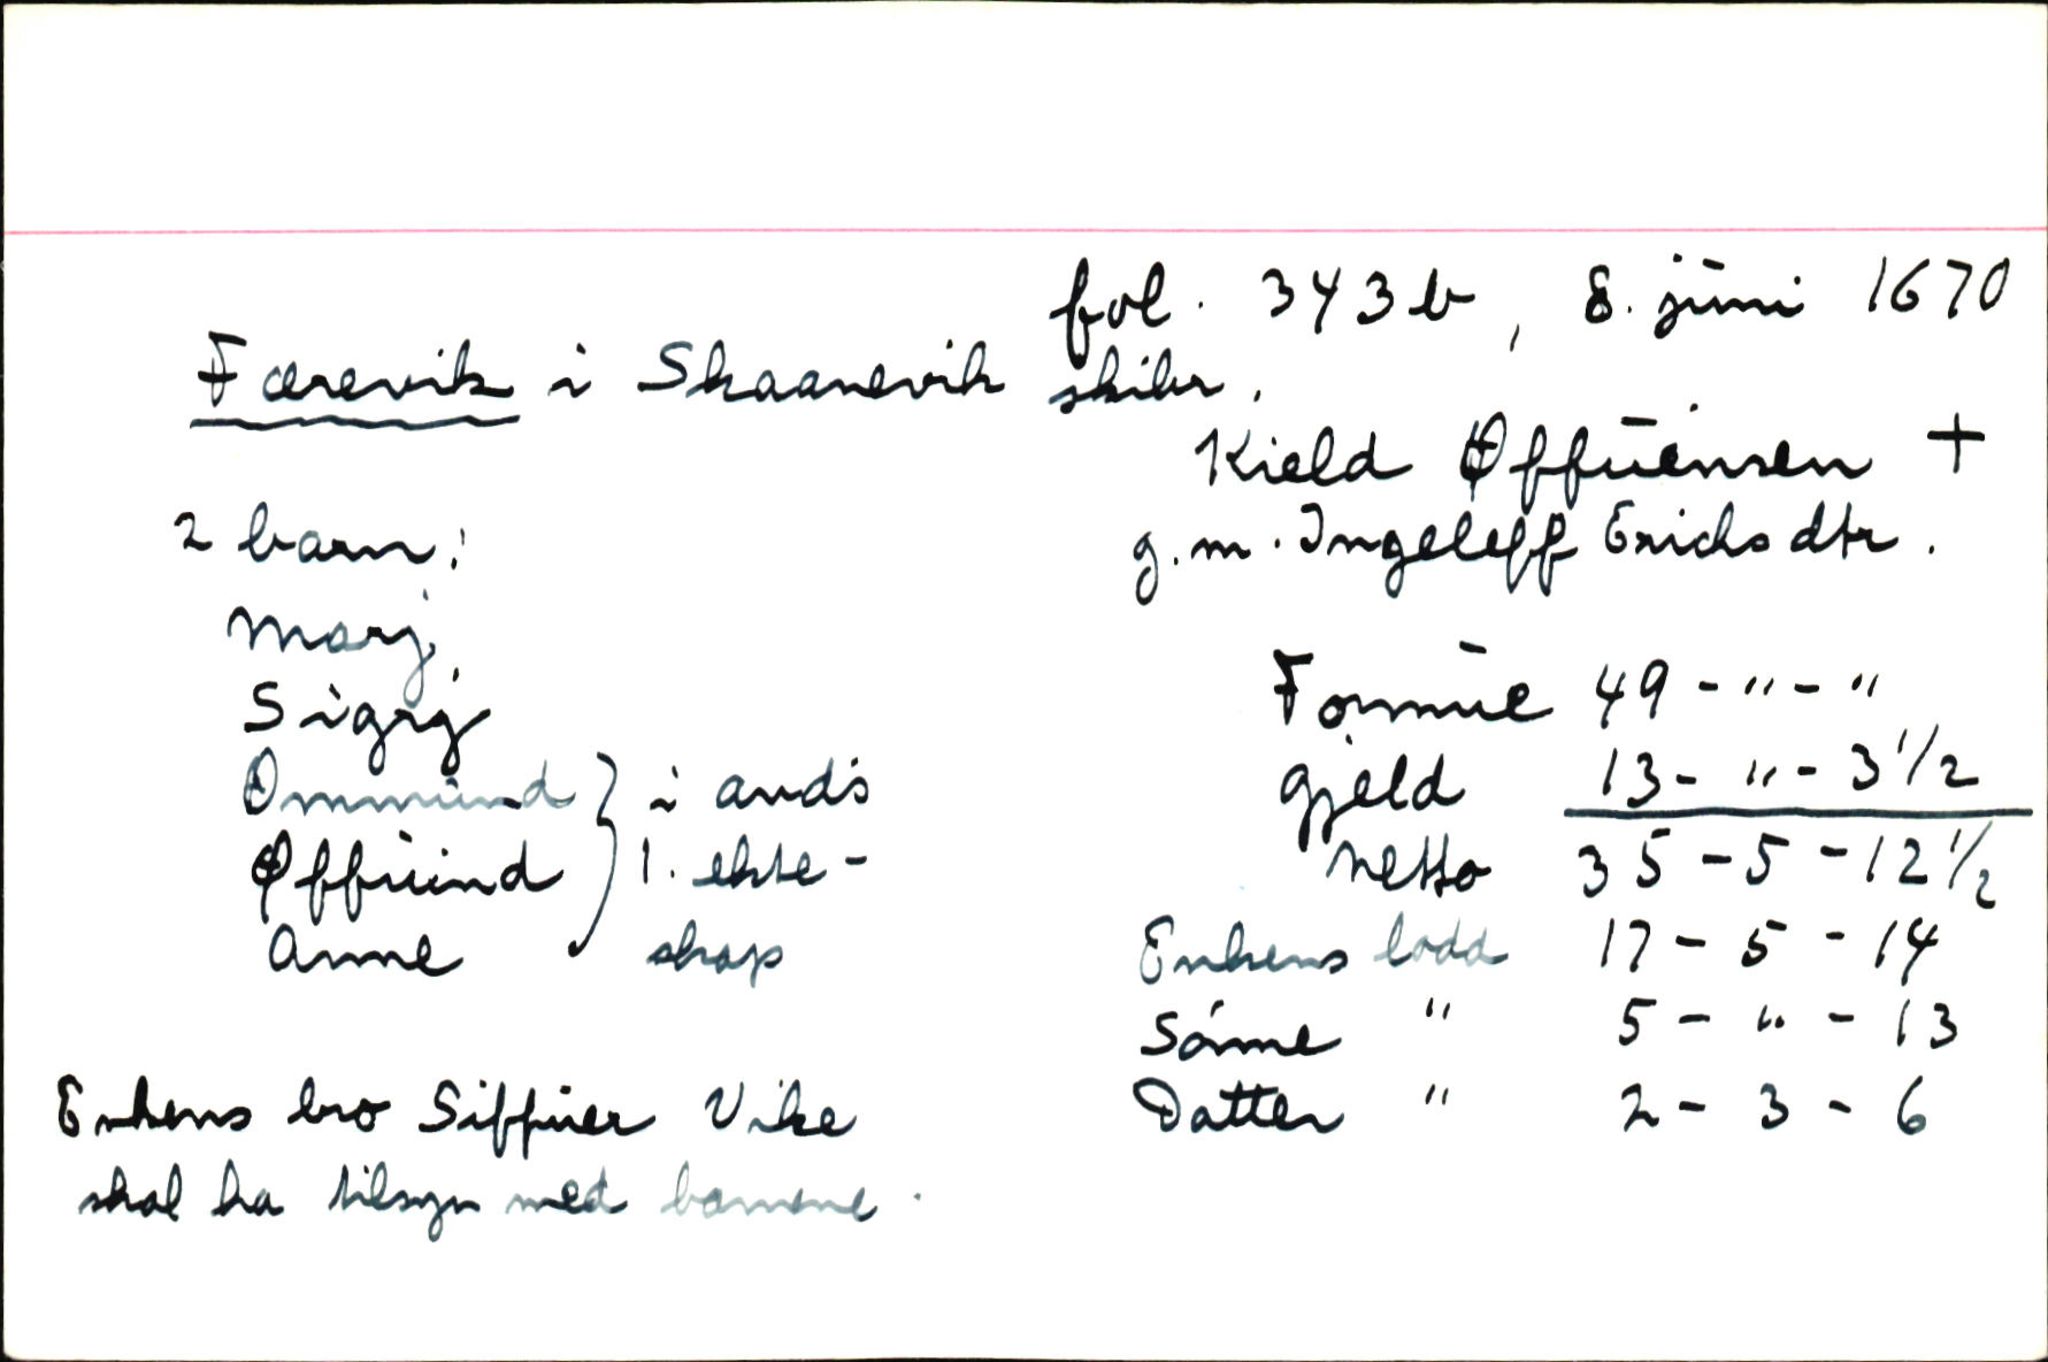 fol. 343b, 8. juni 1670
Færevik i Skaanevik skibr.
Kield Øffuensen +
g.m. Ingeleff Erichsdtr.
2 barn:
Marj
Sigrj
Ommund } i avd's
Øffuind 1. ekte-
Anne skap
Formue 49 - " - "
Gjeld 13 - " - 3 1/2
Netto 35 - 5 - 12 1/2
Enkens lodd 17 - 5 - 14
Sønne " 5 - " - 13
Datter " 2 - 3 - 6
Enkens bro Siffuer Vike
skal ha tilsyn med barnene.